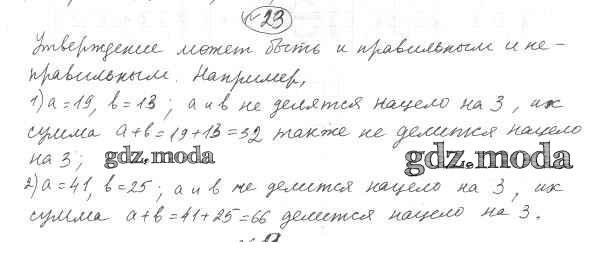 № 23
Утверждение может быть и правильным и не-
правильным. Например,
1) a = 19, b = 13; a и b не делятся нацело на 3, их
сумма a+b = 19+13 = 32 также не делится нацело
на 3; gdz.moda gdz.moda
2) a = 41, b = 25; a и b не делится нацело на 3, их
сумма a+b = 41+25 = 66 делится нацело на 3.